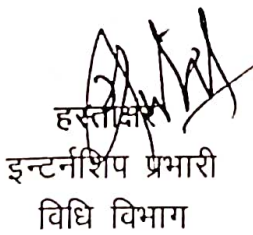 हस्ताक्षर
इन्टर्नशिप प्रभारी
विधि विभाग